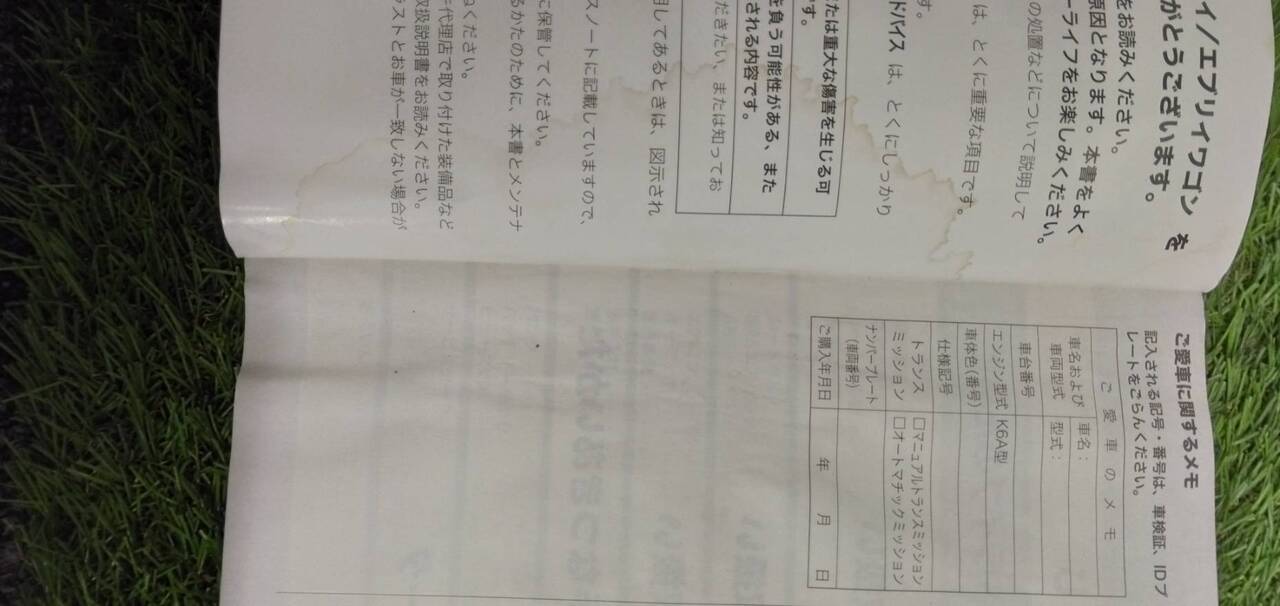 イ/エブリイワゴン を
がとうございます。
をお読みください。
原因となります。本書をよく
ーライフをお楽しみください。
の処置などについて説明して
は、とくに重要な項目です。
す。
ドバイス は、とくにしっかり
たは重大な傷害を生じる可
です。
を負う可能性がある、また
される内容です。
だきたい、または知ってお
明してあるときは、図示され
スノートに記載していますので、
に保管してください。
るかたのために、本書とメンテナ
ねください。
代理店で取り付けた装備品など
取扱説明書をお読みください。
ラストとお車が一致しない場合が
ご愛車に関するメモ
記入される記号・番号は、車検証、IDプ
レートをごらんください。
ご 愛 車 の メ モ
車名および 車名：
車両型式 型式：
車台番号
エンジン型式 K6A型
車体色(番号)
仕様記号
トランス □マニュアルトランスミッション
ミッション □オートマチックミッション
ナンバープレート
(車両番号)
ご購入年月日 年 月 日